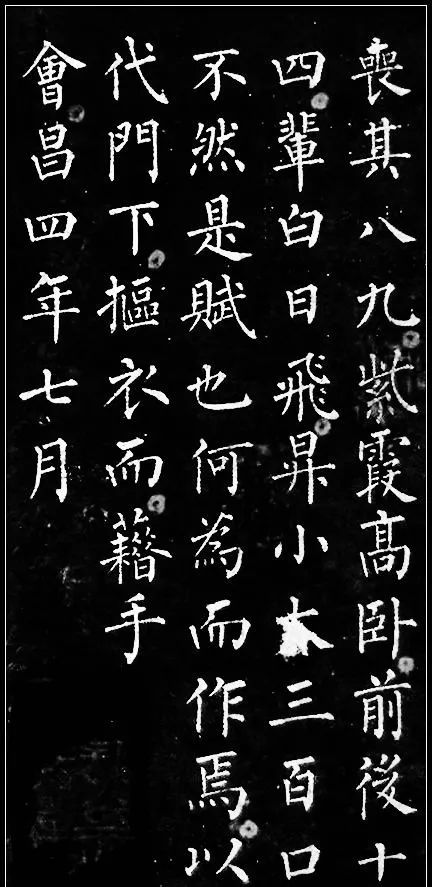 喪其八九紫霞高卧前後十
四輩白日飛昇小大三百口
不然是賦也何為而作焉以
代門下摳衣而藉手
會昌四年七月